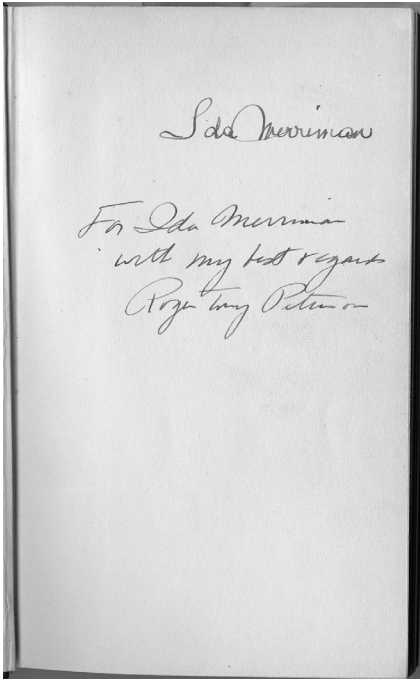 Ida Merriman
For Ida Merriman
with my best regards
Roger Tory Peterson